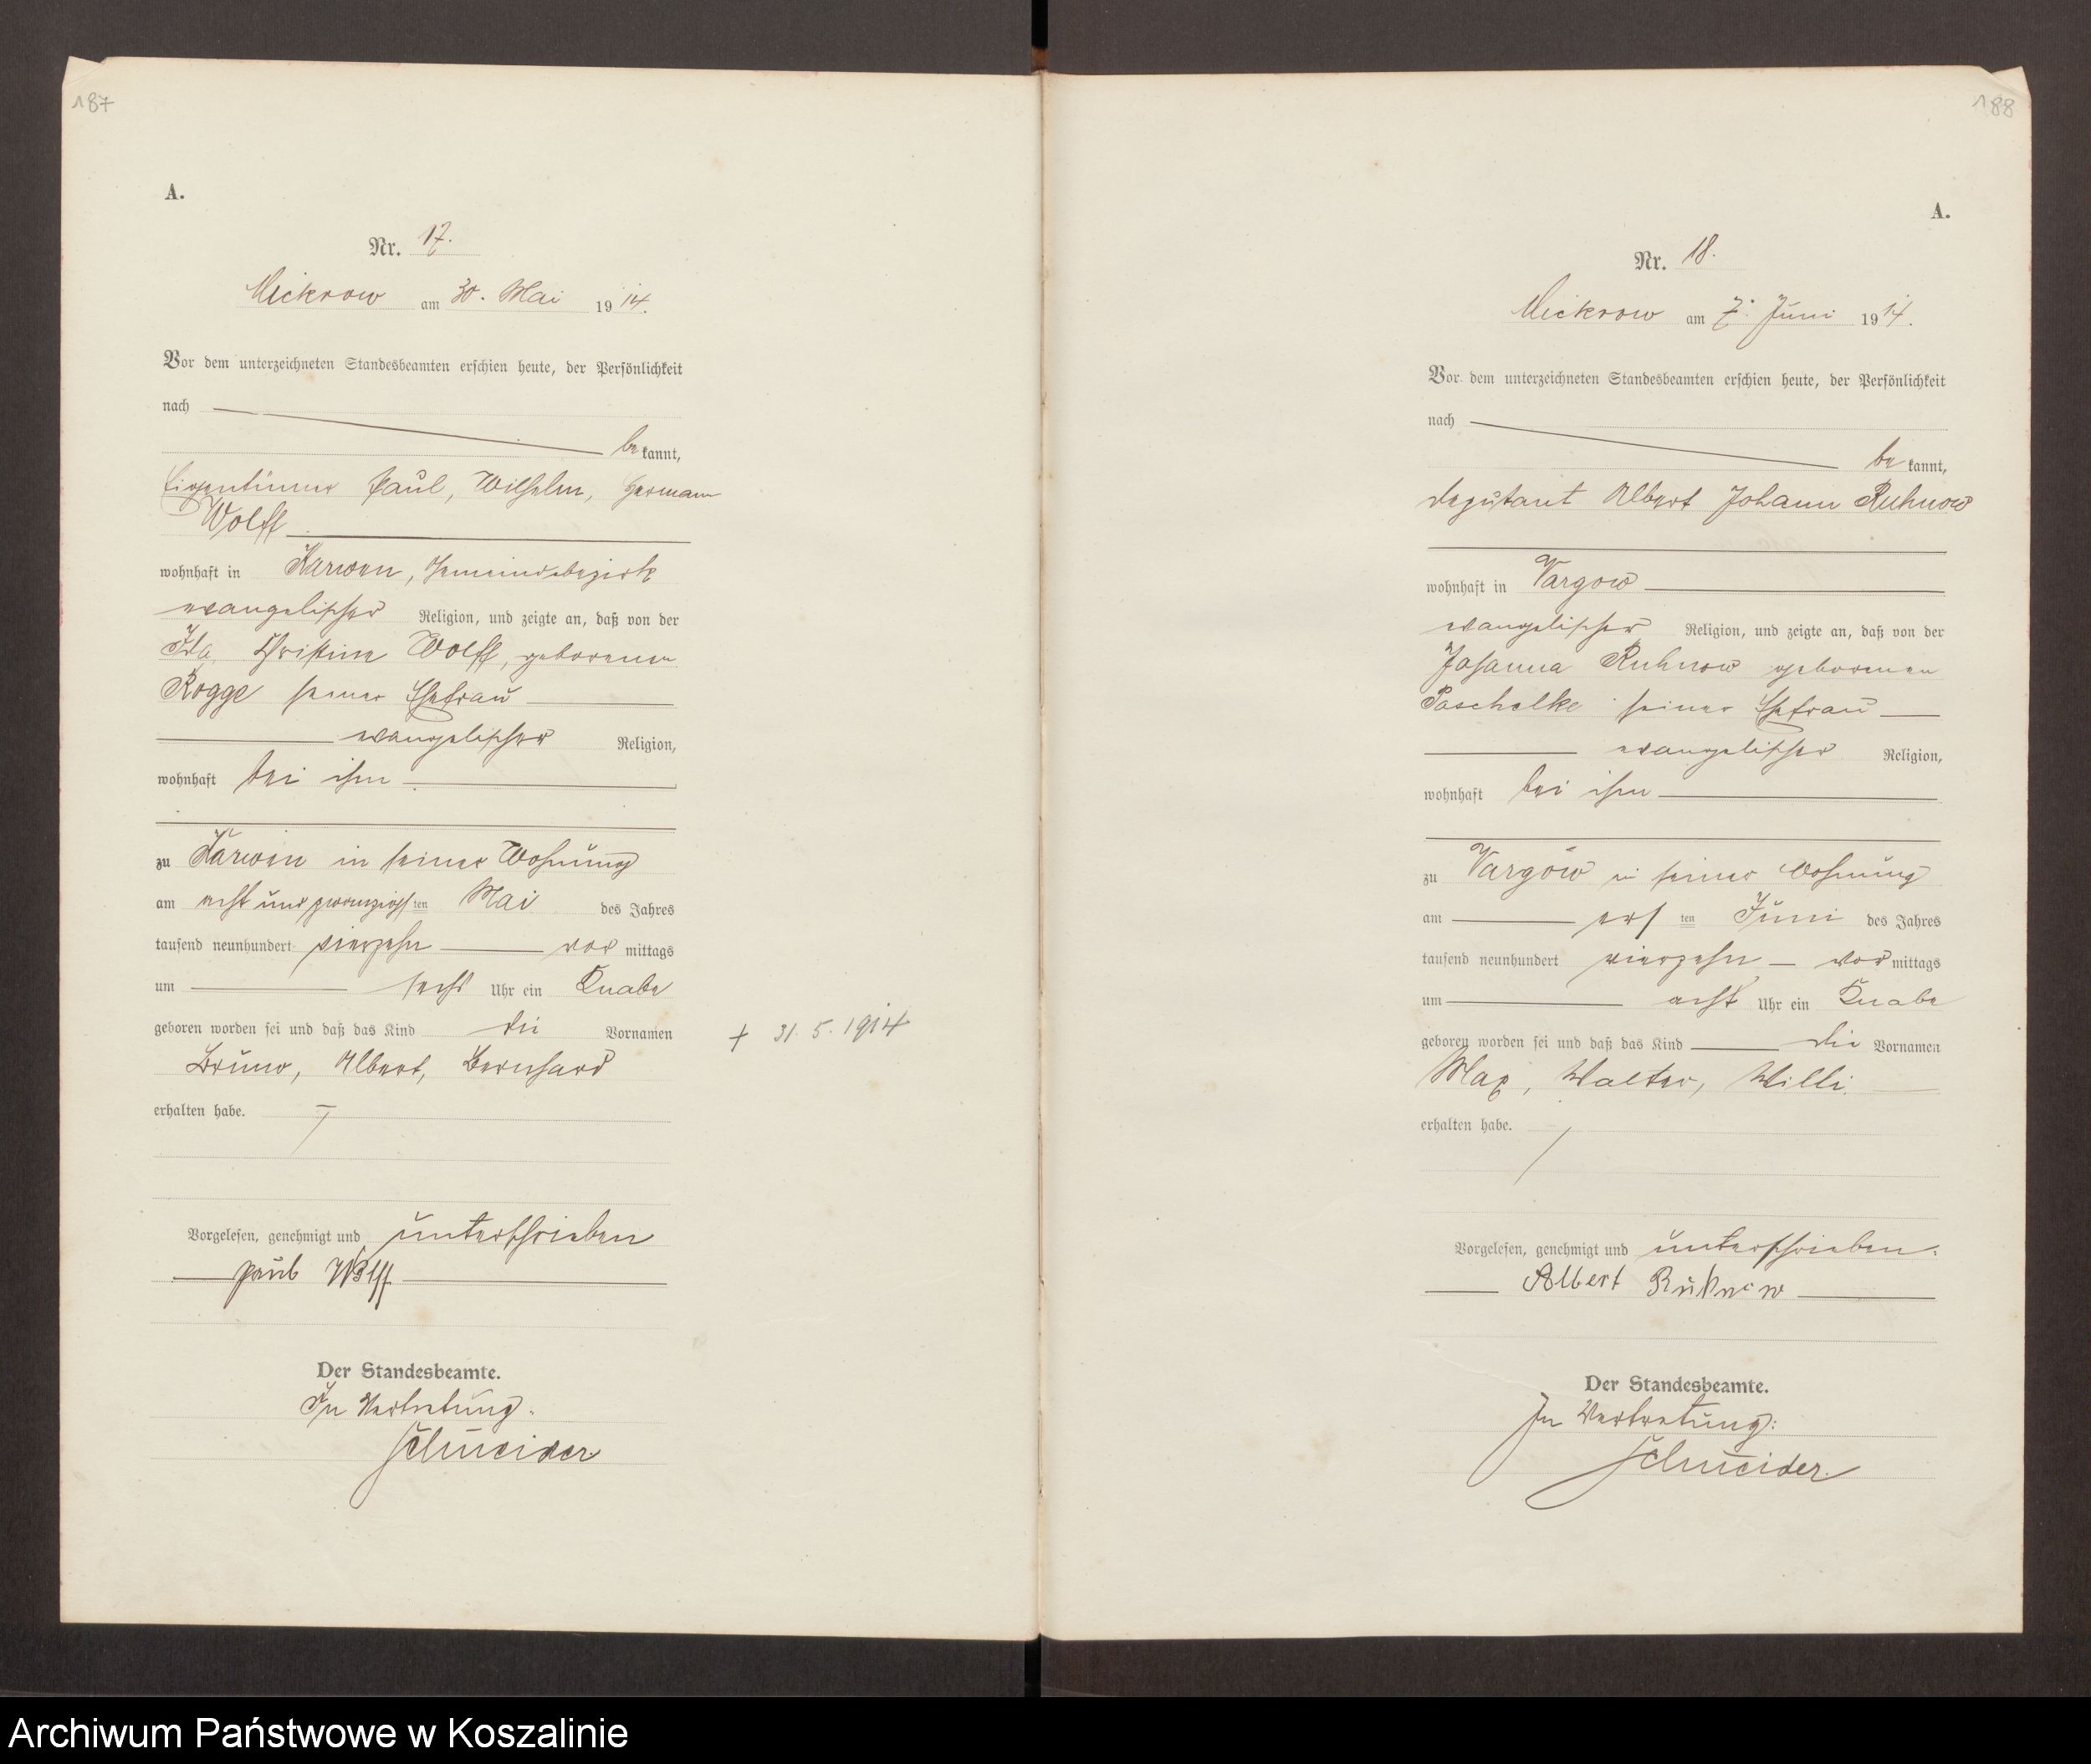 187
A.
Nr. 17.
Mickrow am 30. Mai 1914.
Vor dem unterzeichneten Standesbeamten erschien heute, der Persönlichkeit
nach
bekannt,
Eigentümer Paul, Wilhelm, Hermann
Wolff
wohnhaft in Karwen, Gemeindebezirk
evangelischer Religion, und zeigte an, daß von der
Ida Christine Wolff, geborenen
Rogge seiner Ehefrau
evangelischer Religion,
wohnhaft bei ihm
zu Karwen in seiner Wohnung
am acht und zwanzigsten Mai des Jahres
tausend neunhundert vierzehn vormittags
um sechs Uhr ein Knabe
geboren worden sei und daß das Kind die Vornamen
+ 31. 5. 1914
Bruno, Albert, Bernhard
erhalten habe.
Vorgelesen, genehmigt und unterschrieben
Paul Wolff
Der Standesbeamte.
In Vertretung.
Schneider.
188
A.
Nr. 18.
Mickrow am 7. Juni 1914.
Vor dem unterzeichneten Standesbeamten erschien heute, der Persönlichkeit
nach
bekannt,
Deputant Albert Johann Ruhnow
wohnhaft in Vargow
evangelischer Religion, und zeigte an, daß von der
Johanna Ruhnow geborenen
Paschelke seiner Ehefrau
evangelischer Religion,
wohnhaft bei ihm
zu Vargow in seiner Wohnung
am ersten Juni des Jahres
tausend neunhundert vierzehn vormittags
um acht Uhr ein Knabe
geboren worden sei und daß das Kind die Vornamen
Max, Walter, Willi.
erhalten habe.
Vorgelesen, genehmigt und unterschrieben.
Albert Ruhnow
Der Standesbeamte.
In Vertretung:
Schneider.
Archiwum Państwowe w Koszalinie